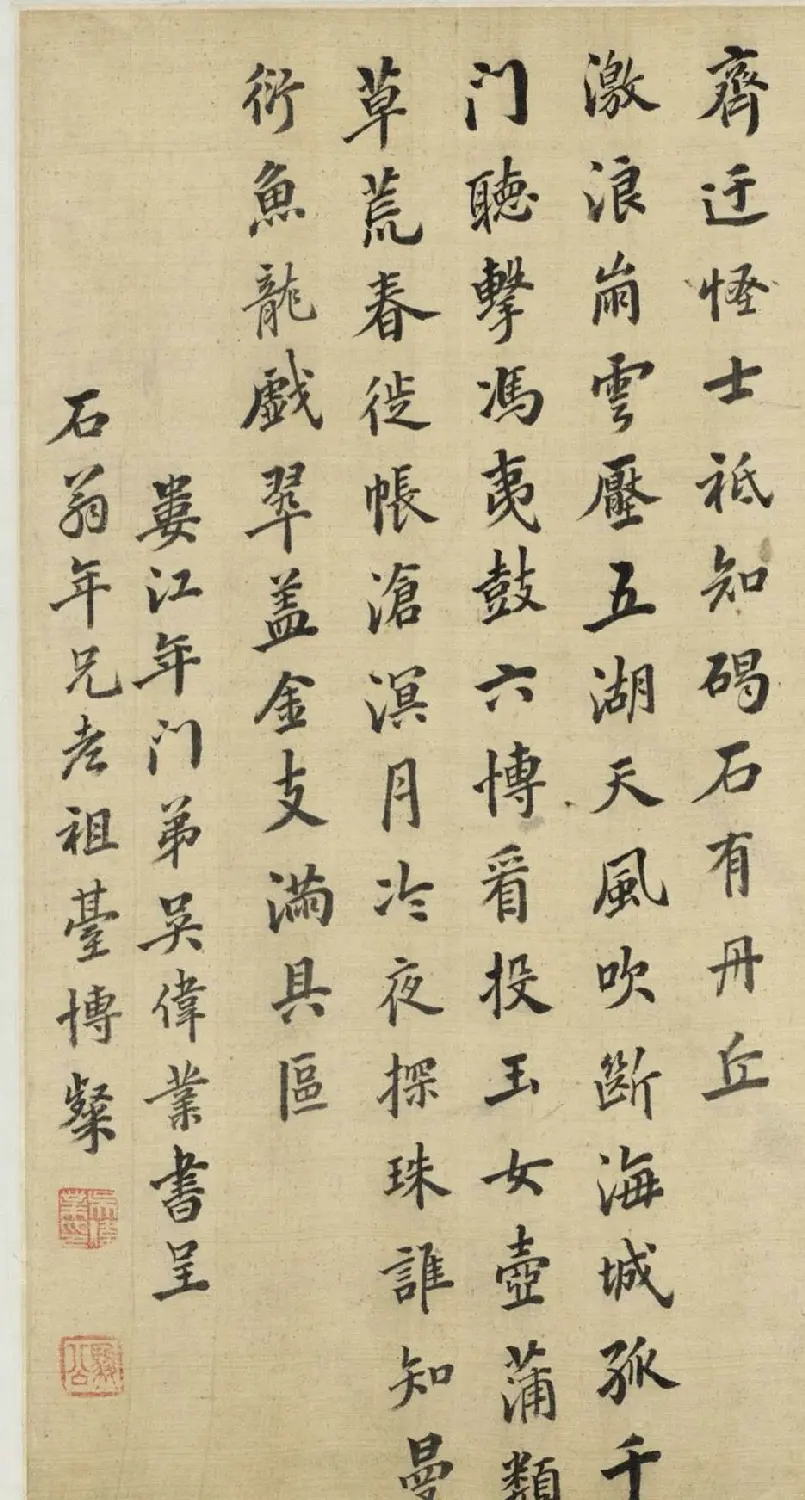 齊迂怪士祗知碣石有丹丘
激浪崩雲壓五湖天風吹斷海城孤千
门聽擊馮夷鼓六愽看投玉女壺蒲類
草荒春徙帳滄溟月冷夜探珠誰知曼
衍魚龍戱翠盖金支滿具區
婁江年门弟吴偉業書呈
石翁年兄老祖臺愽粲